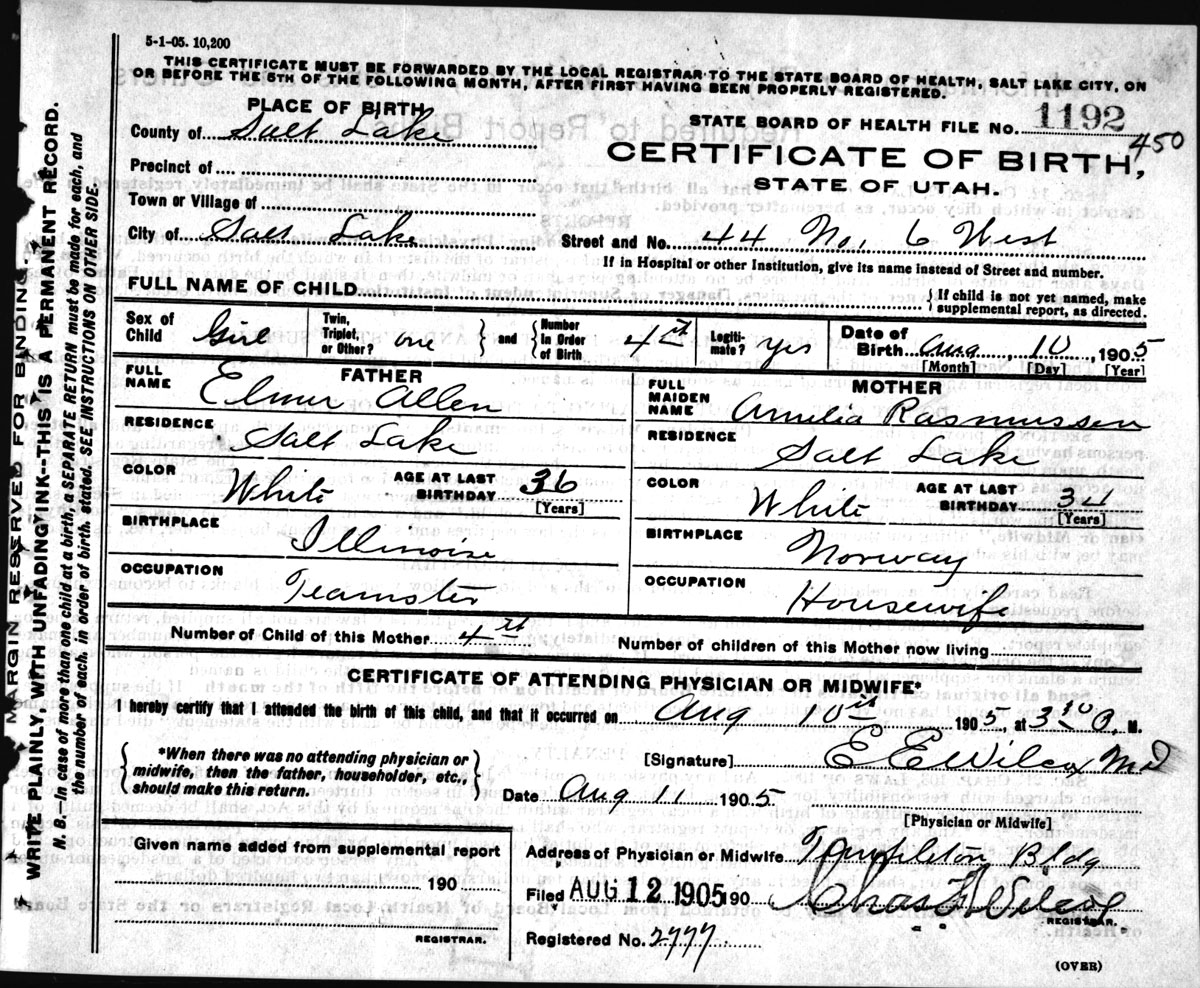 5-1-05. 10,200
THIS CERTIFICATE MUST BE FORWARDED BY THE LOCAL REGISTRAR TO THE STATE BOARD OF HEALTH, SALT LAKE CITY, ON
OR BEFORE THE 5TH OF THE FOLLOWING MONTH, AFTER FIRST HAVING BEEN PROPERLY REGISTERED.
PLACE OF BIRTH
STATE BOARD OF HEALTH FILE NO. 1192
450
County of Salt Lake
CERTIFICATE OF BIRTH,
Precinct of
STATE OF UTAH.
Town or Village of
City of Salt Lake Street and No. 44 No. 6 West
If in Hospital or other Institution, give its name instead of Street and number.
FULL NAME OF CHILD { If child is not yet named, make supplemental report, as directed.
Sex of Child Girl Twin, Triplet, or Other? one } and { Number In Order of Birth 4th Legitimate? yes Date of Birth Aug 10 1905
[Month] [Day] [Year]
FATHER MOTHER
FULL NAME Elmer Allen FULL MAIDEN NAME Amelia Rasmussen
RESIDENCE Salt Lake RESIDENCE Salt Lake
COLOR White AGE AT LAST BIRTHDAY 36 [Years] COLOR White AGE AT LAST BIRTHDAY 34 [Years]
BIRTHPLACE Illinoise BIRTHPLACE Norway
OCCUPATION Teamster OCCUPATION Housewife
Number of Child of this Mother 4th Number of children of this Mother now living
CERTIFICATE OF ATTENDING PHYSICIAN OR MIDWIFE*
I hereby certify that I attended the birth of this child, and that it occurred on Aug 10th 1905, at 3 30 P. M.
{ *When there was no attending physician or midwife, then the father, householder, etc., should make this return. }
[Signature] E E Wilcox MD
Date Aug 11 1905
[Physician or Midwife]
Given name added from supplemental report
190
REGISTRAR.
Address of Physician or Midwife Templeton Bldg
Filed AUG 12 1905 190 Chas F. Wilcox
REGISTRAR.
Registered No. 2777
(OVER)
MARGIN RESERVED FOR BINDING.
WRITE PLAINLY WITH UNFADING INK--THIS IS A PERMANENT RECORD.
N. B. In case of more than one child at a birth, a SEPARATE RETURN must be made for each, and
the number of each, in order of birth, stated. SEE INSTRUCTIONS ON OTHER SIDE.